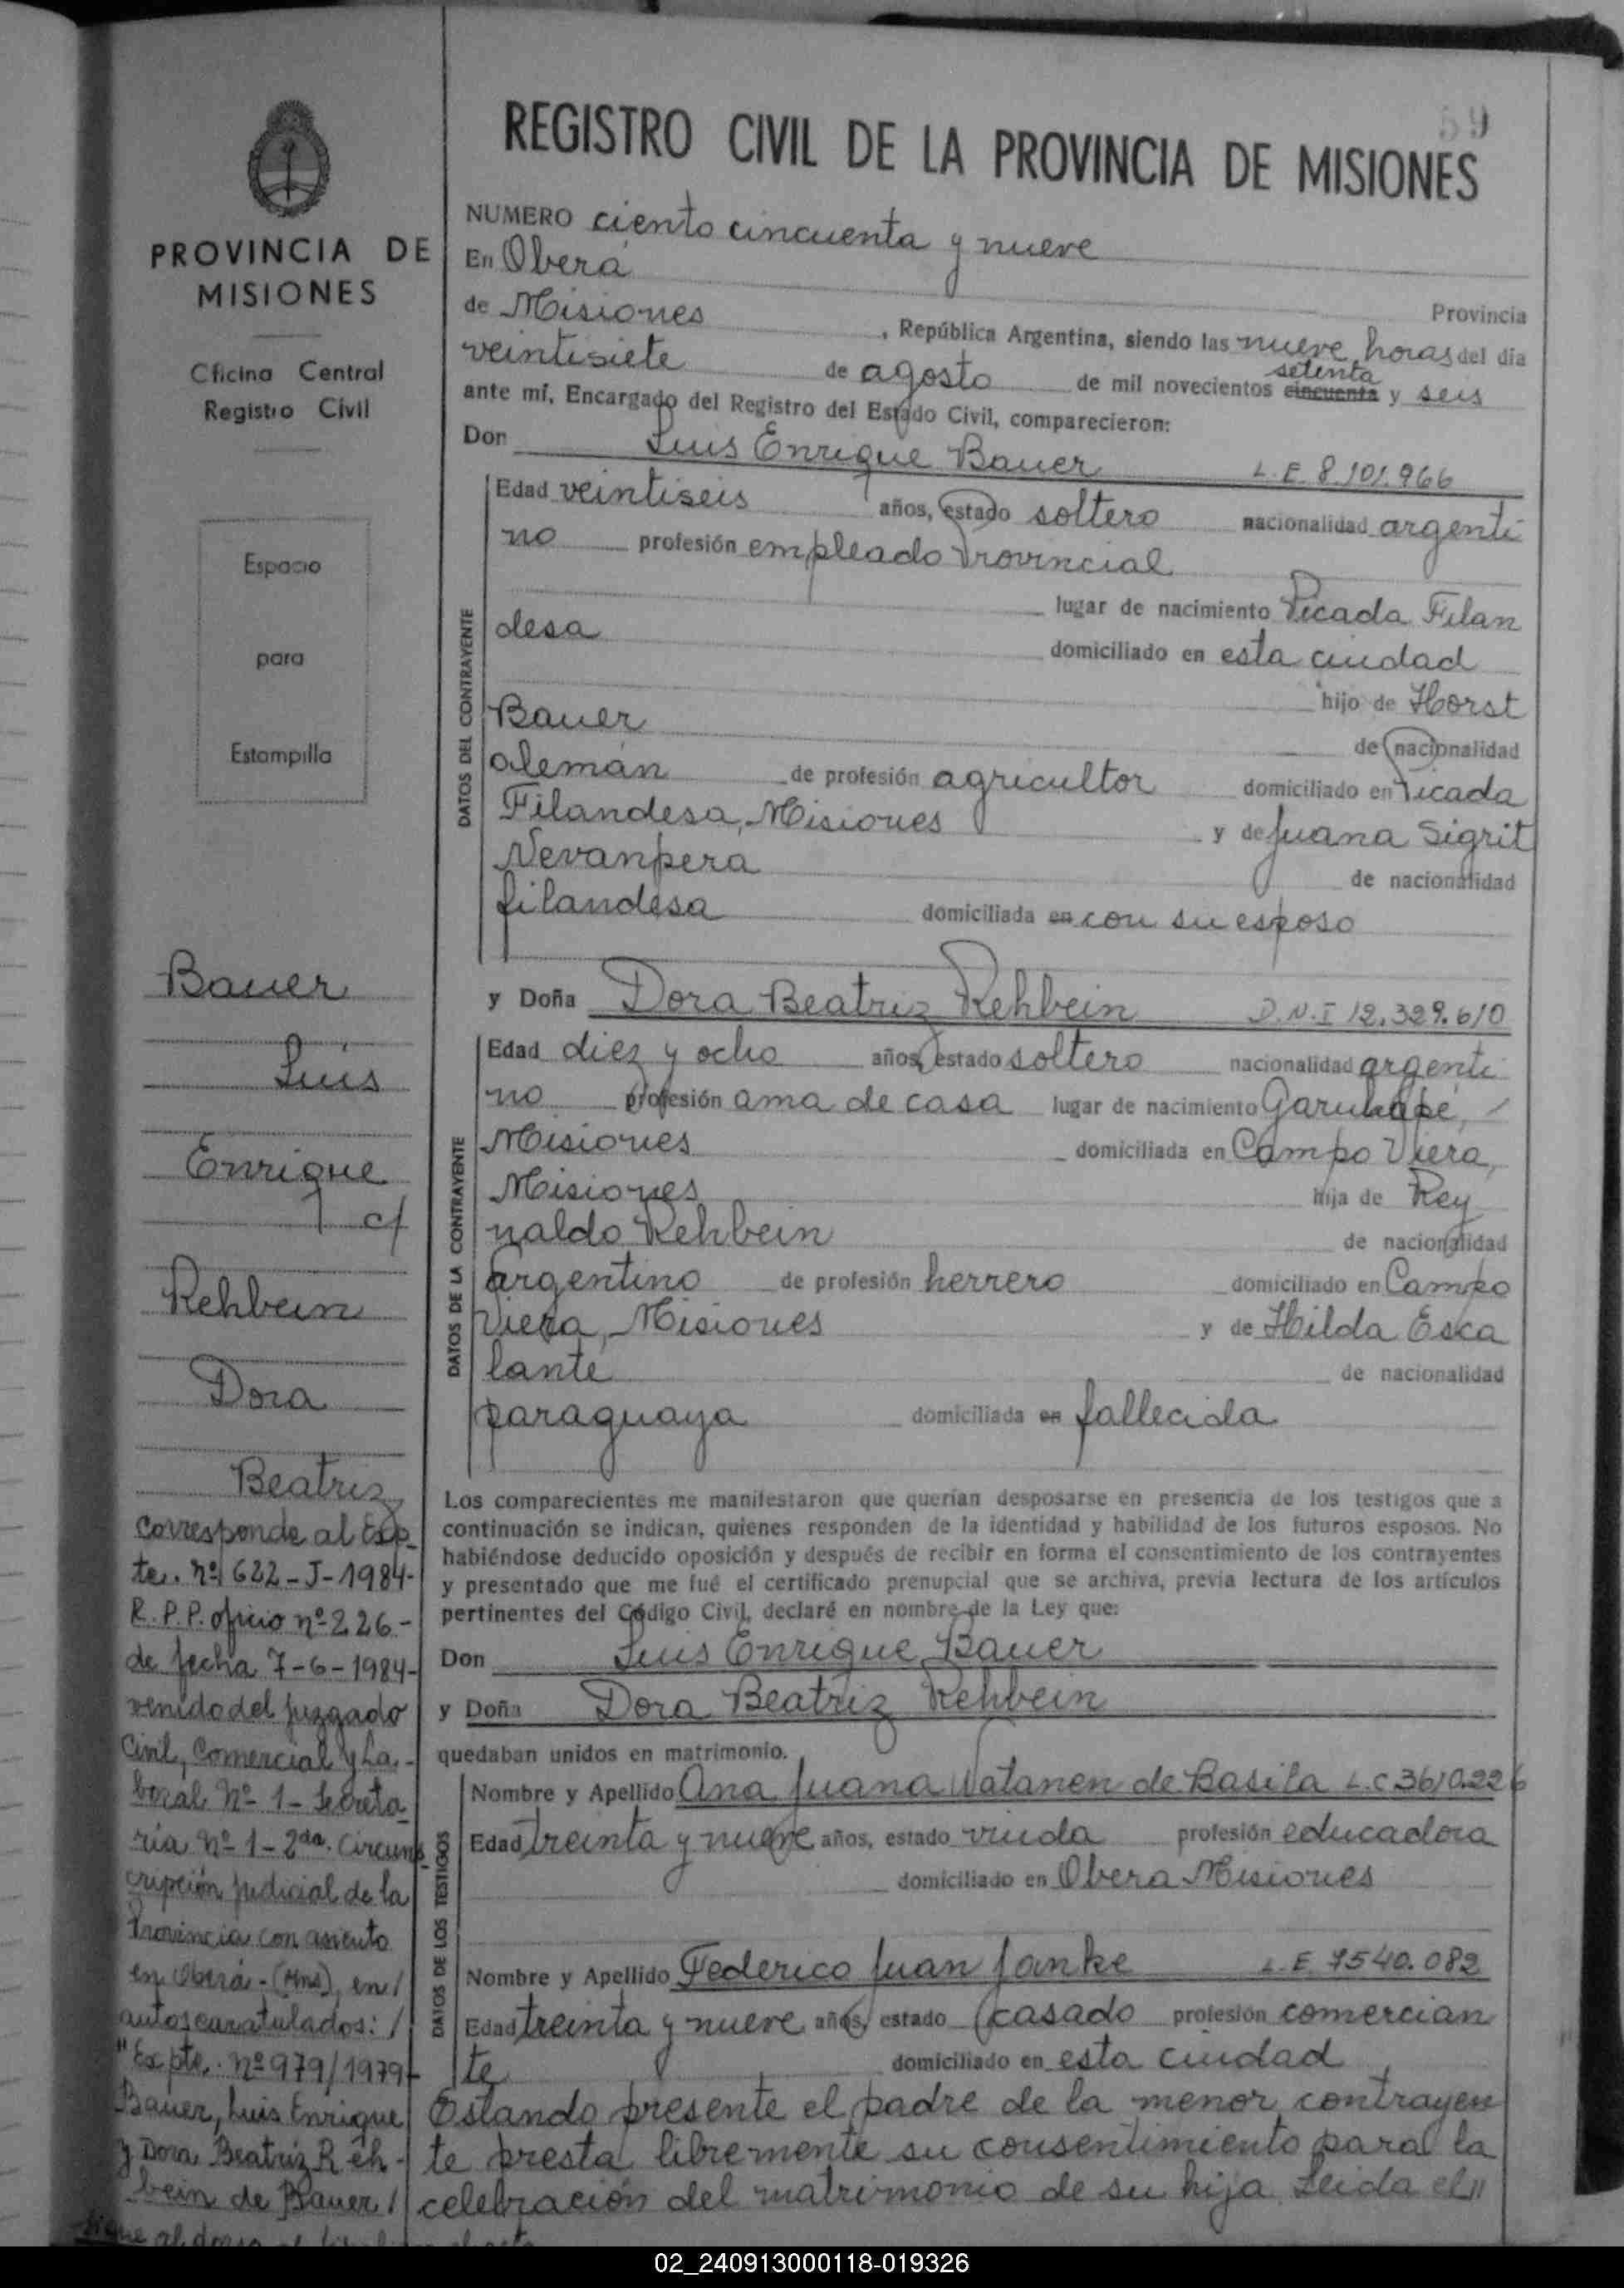 59
REGISTRO CIVIL DE LA PROVINCIA DE MISIONES
PROVINCIA DE
MISIONES
Oficina Central
Registro Civil
Espacio
para
Estampilla
Bauer
Luis
Enrique
c/
Rehbein
Dora
Beatriz
corresponde al Exp-
te. nº 622-J-1984-
R.P.P. oficio nº 226-
de fecha 7-6-1984-
venido del juzgado
Civil, Comercial y La-
boral Nº 1- Secreta-
ría Nº 1- 2da. Circuns
cripción judicial de la
Provincia con asiento
en Oberá-(Mns), en/
autos caratulados:/
"Expte. nº 979/1979-
Bauer, Luis Enrique
y Dora Beatriz Reh-
bein de Bauer/
sigue al dorso
NUMERO ciento cincuenta y nueve
En Oberá
Provincia
de Misiones , República Argentina, siendo las nueve horas del día
veintisiete de agosto de mil novecientos cincuenta setenta y seis
ante mí, Encargado del Registro del Estado Civil, comparecieron:
Don Luis Enrique Bauer L.E. 8.101.966
DATOS DEL CONTRAYENTE
Edad veintiseis años, estado soltero nacionalidad argenti
no profesión empleado Provincial
lugar de nacimiento Picada Filan
desa domiciliado en esta ciudad
hijo de Horst
Bauer de nacionalidad
alemán de profesión agricultor domiciliado en Picada
Filandesa, Misiones y de Juana Sigrit
Nevanpera de nacionalidad
filandesa domiciliada en con su esposo
y Doña Dora Beatriz Rehbein D.N.I 12.329.610
DATOS DE LA CONTRAYENTE
Edad diez y ocho años, estado soltero nacionalidad argenti
no profesión ama de casa lugar de nacimiento Garuhapé, /
Misiones domiciliada en Campo Viera,
Misiones hija de Rey
naldo Rehbein de nacionalidad
argentino de profesión herrero domiciliado en Campo
Viera, Misiones y de Hilda Esca
lante de nacionalidad
paraguaya domiciliada en fallecida
Los comparecientes me manifestaron que querían desposarse en presencia de los testigos que a
continuación se indican, quienes responden de la identidad y habilidad de los futuros esposos. No
habiéndose deducido oposición y después de recibir en forma el consentimiento de los contrayentes
y presentado que me fué el certificado prenupcial que se archiva, previa lectura de los artículos
pertinentes del Código Civil, declaré en nombre de la Ley que:
Don Luis Enrique Bauer
y Doña Dora Beatriz Rehbein
quedaban unidos en matrimonio.
DATOS DE LOS TESTIGOS
Nombre y Apellido Ana Juana Watanen de Basila L.C 3610.226
Edad treinta y nueve años, estado viuda profesión educadora
domiciliado en Obera Misiones
Nombre y Apellido Federico Juan Janke L.E. 7540.082
Edad treinta y nueve años, estado casado profesión comercian
te domiciliado en esta ciudad
Estando presente el padre de la menor contrayen
te presta libremente su consentimiento para la
celebración del matrimonio de su hija. Leida el//
02_240913000118-019326